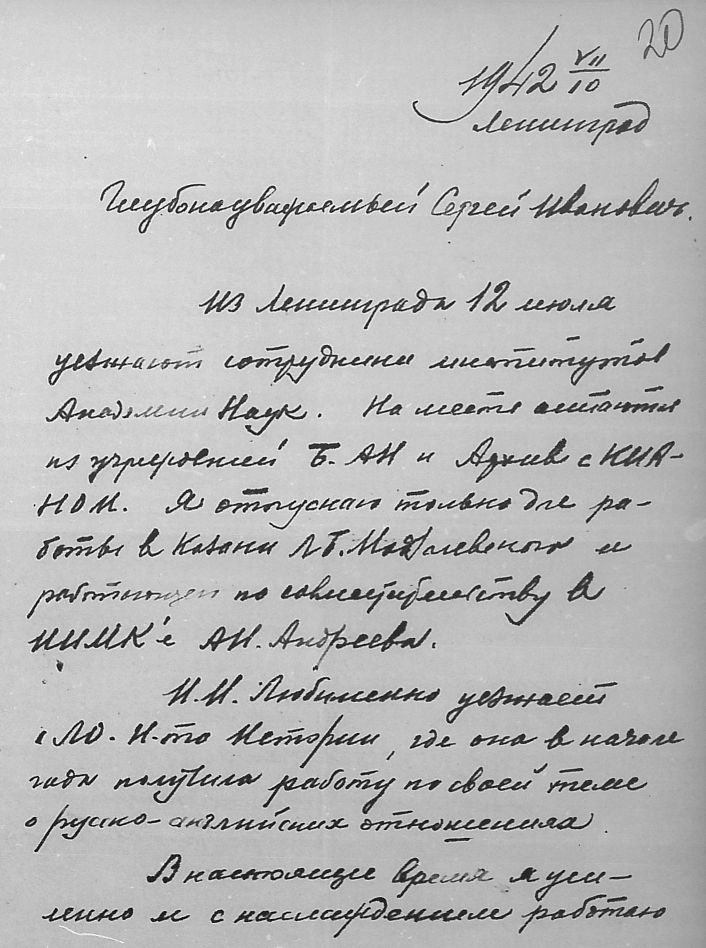 20
1942 VII/10
Ленинград
Глубокоуважаемый Сергей Иванович.
Из Ленинграда 12 июля
уезжают сотрудники институтов
Академии Наук. На месте остаются
из учреждений Б.АН и Архив с КИА-
НОМ. Я отпускаю только для ра-
боты в Казани Л.Б. Модзалевского и
работающего по совместительству в
ИИМК'е А.И. Андреева.
И.И. Любименко уезжает
с ЛО. И-та Истории, где она в начале
года получила работу по своей теме
о русско-английских отношениях
В настоящее время я уси-
ленно и с наслаждением работаю